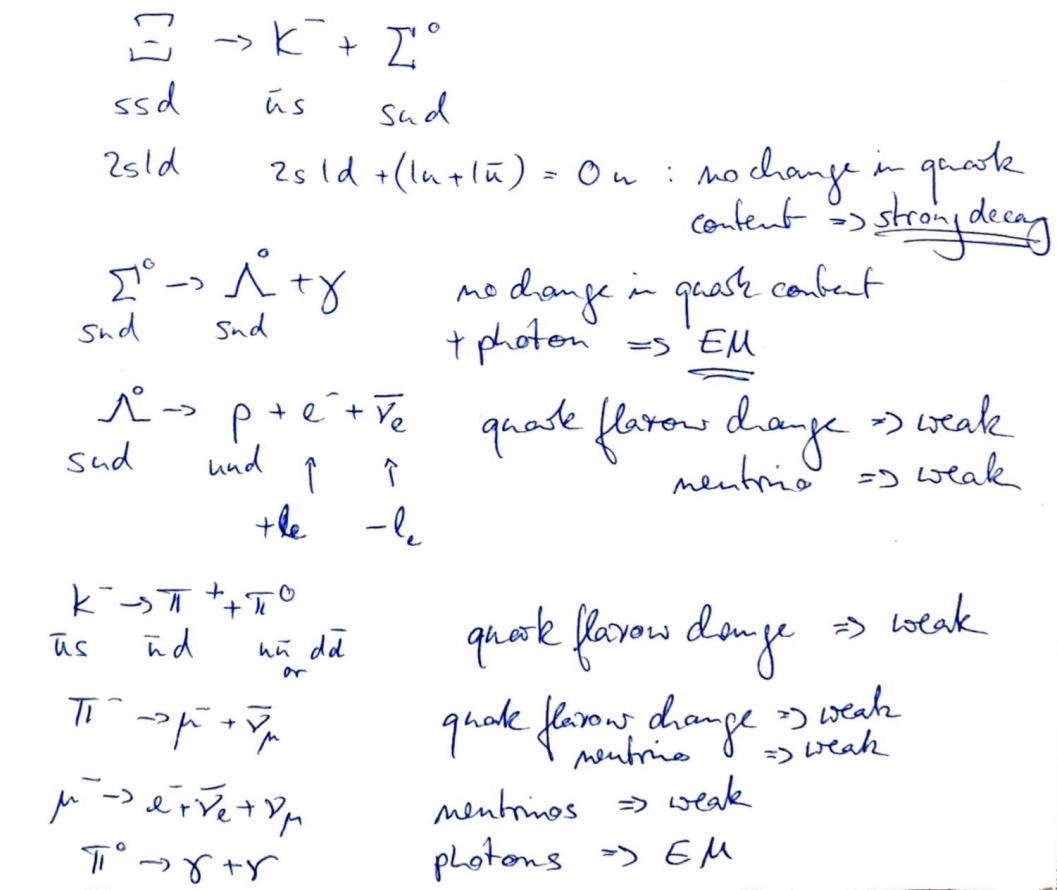 Ξ → K⁻ + Σ⁰
ssd ūs sud
2s1d 2s 1d + (1u + 1ū) = 0u : no change in quark
content => strong decay
Σ⁰ → Λ⁰ + γ no change in quark content
sud sud + photon => EM
Λ⁰ → p + e⁻ + ν̄ₑ quark flavour change => weak
sud uud ↑ ↑ neutrino => weak
+lₑ -lₑ
K⁻ → π⁺ + π⁰
ūs ūd uū or dd̄ quark flavour change => weak
π⁻ → μ⁻ + ν̄_μ quark flavour change => weak
neutrino => weak
μ⁻ → e⁻ + ν̄ₑ + ν_μ neutrinos => weak
π⁰ → γ + γ photons => EM